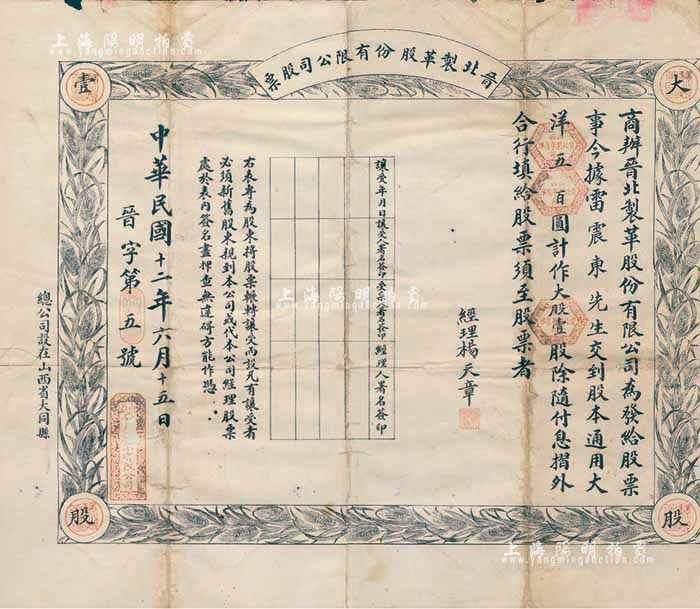 晋北製革股份有限公司股票
大
壹
股
股
商辦晋北製革股份有限公司為發給股票
事今據雷震東先生交到股本通用大
洋五百圓計作大股壹股除隨付息摺外
合行填給股票須至股票者
經理楊天章
讓受年月日
讓受人署名簽印
受業人署名簽印
經理人署名簽印
右表專為股東將股票輾轉讓受而設凡有讓受者
必須新舊股東親到本公司或代本公司經理股票
處於表內簽名盡押查無違碍方能作憑
中華民國十二年六月十五日
晋字第五號
總公司設在山西省大同縣
上海陽明拍賣
www.yangmingauction.com
上海陽明拍賣
www.yangmingauction.com
上海陽明拍賣
www.yangmingauction.com